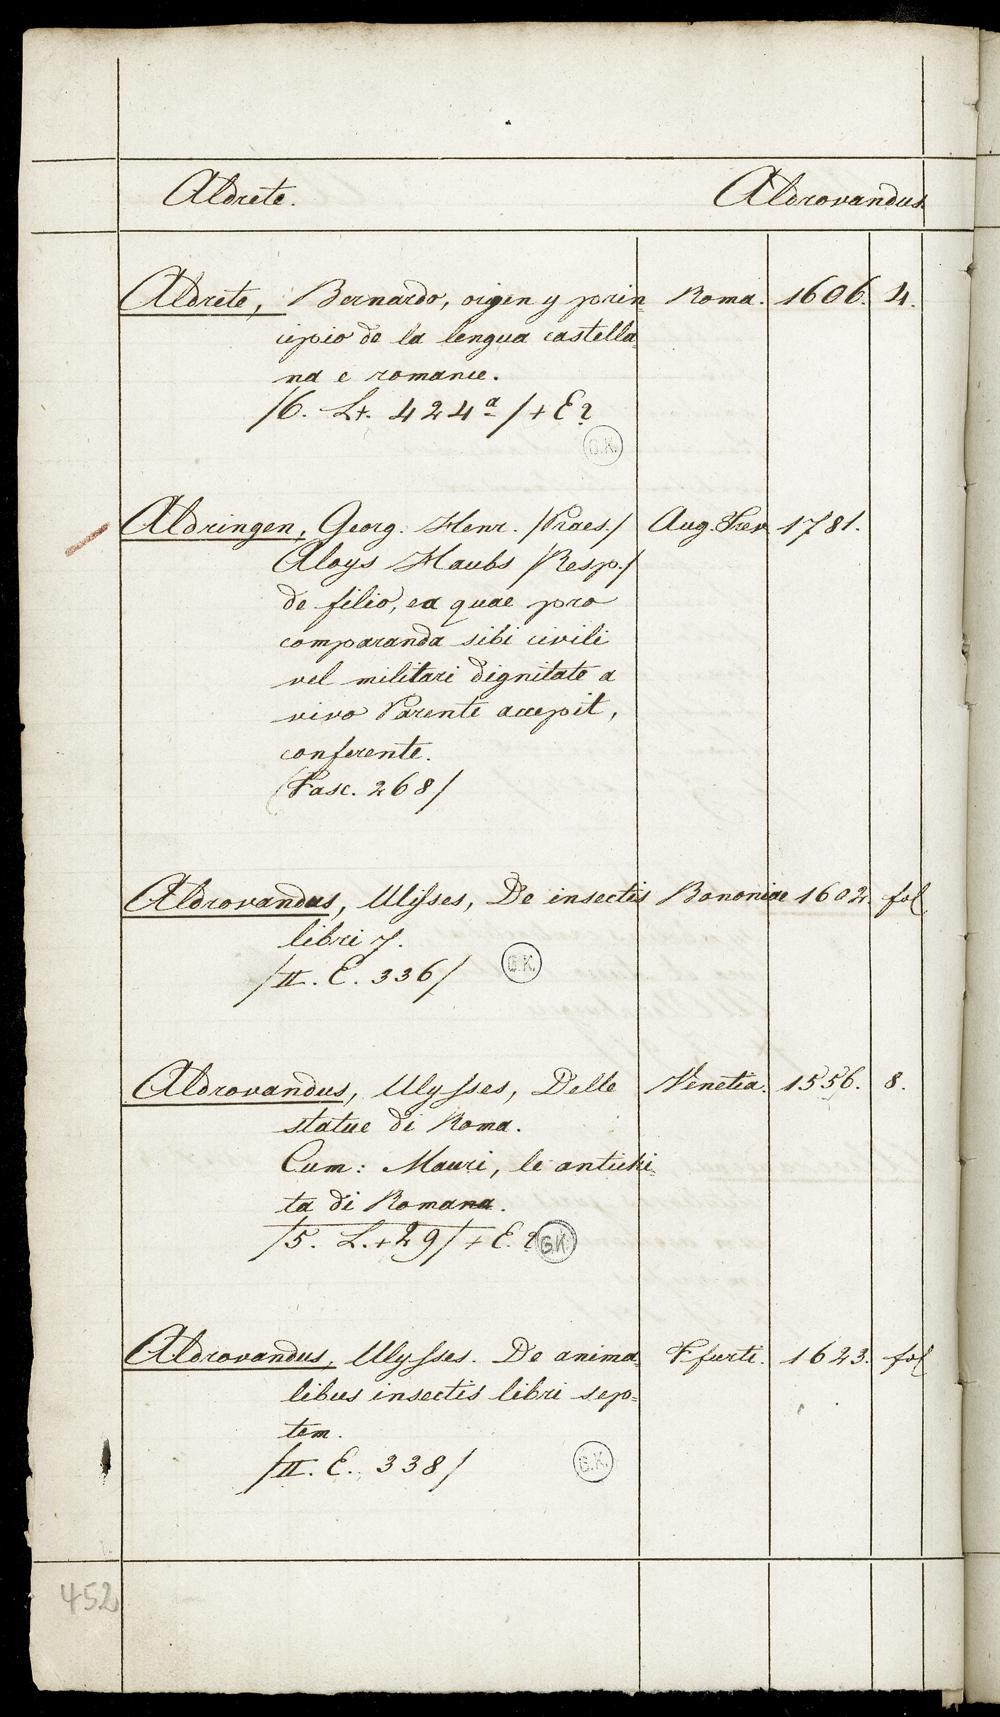 Aldrete. Aldrovandus.
Aldrete, Bernardo, origen y prin Roma. 1606. 4.
cipio de la lengua castella
na e romance.
/6. L+. 424ª/ + E?
G.K.
Aldringen, Georg. Henr. /Praes./ Aug. Trev. 1781.
Aloys Haubs /Resp./
de filio, ea quae pro
comparanda sibi civili
vel militari dignitate a
vivo Parente accepit,
conferente.
(Fasc. 268/
Aldrovandus, Ulysses, De insectis Bononiae 1602. fol
libri 7.
/II. E. 336/ G.K.
Aldrovandus, Ulysses, Delle Venetia. 1556. 8.
statue di Roma.
Cum: Mauri, le antichi
ta di Romana.
/5. L.+29/ + E. ? G.K.
Aldrovandus, Ulysses. De anima= Ffurti. 1623. fol
libus insectis libri sep=
tem.
/II. E. 338/ G.K.
452